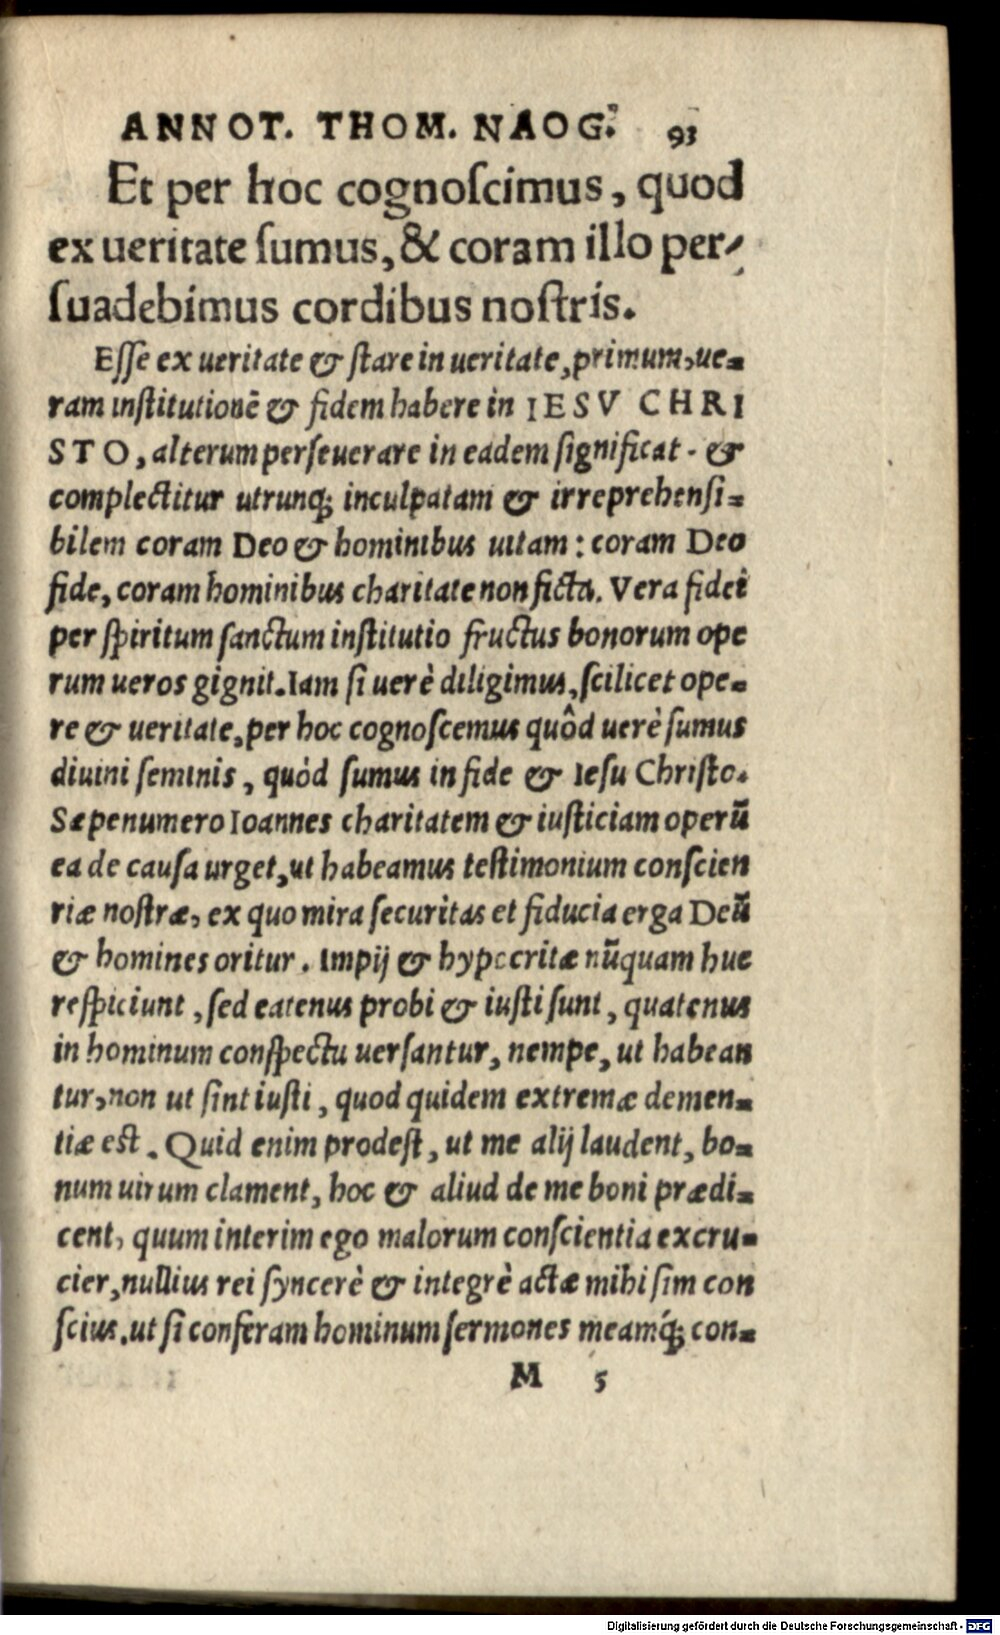 ANNOT. THOM. NAOG. 93
Et per hoc cognoſcimus, quod
ex ueritate ſumus, & coram illo per-
ſuadebimus cordibus noſtris.
Eſſe ex ueritate & ſtare in ueritate, primum, ue-
ram inſtitutionē & fidem habere in IESV CHRI
STO, alterum perſeuerare in eadem ſignificat. &
complectitur utrunq; inculpatam & irreprehenſi-
bilem coram Deo & hominibus uitam: coram Deo
fide, coram hominibus charitate non ficta. Vera fidei
per ſpiritum ſanctum inſtitutio fructus bonorum ope
rum ueros gignit. Iam ſi uerè diligimus, ſcilicet ope-
re & ueritate, per hoc cognoſcemus quôd uerè ſumus
diuini ſeminis, quòd ſumus in fide & Ieſu Chriſto.
Sæpenumero Ioannes charitatem & iuſticiam operū
ea de cauſa urget, ut habeamus teſtimonium conſcien
riæ noſtræ, ex quo mira ſecuritas et fiducia erga Deū
& homines oritur. Impij & hypocritæ nūquam huc
reſpiciunt, ſed eatenus probi & iuſti ſunt, quatenus
in hominum conſpectu uerſantur, nempe, ut habean
tur, non ut ſint iuſti, quod quidem extremæ demen-
tiæ eſt. Quid enim prodeſt, ut me alij laudent, bo-
num uirum clament, hoc & aliud de me boni prædi-
cent, quum interim ego malorum conſcientia excru-
cier, nullius rei ſyncerè & integrè actæ mihi ſim con
ſcius. ut ſi conferam hominum ſermones meamq́; con-
M 5
Digitalisierung gefördert durch die Deutsche Forschungsgemeinschaft - DFG